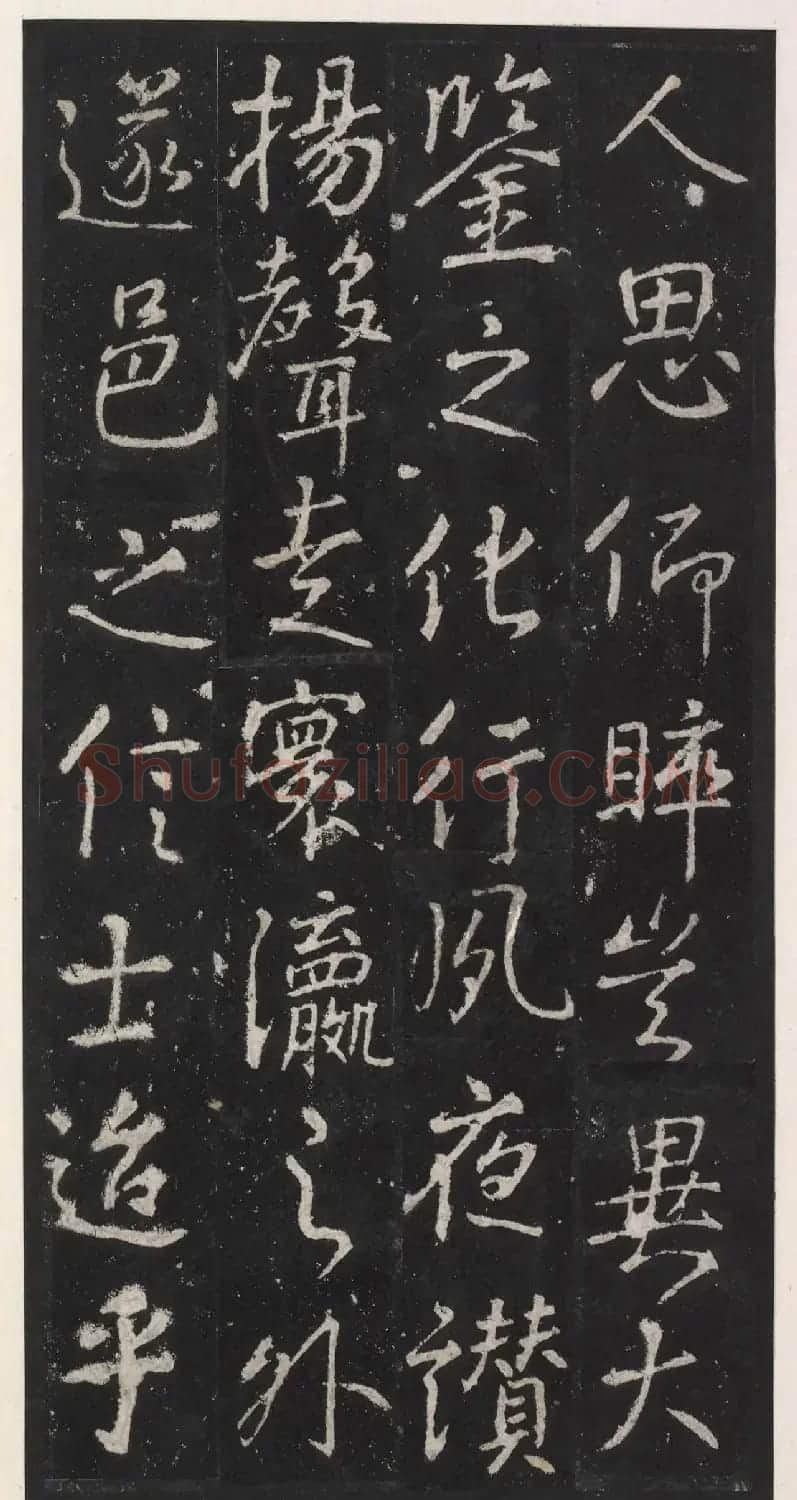 人思仰睟豈異大
鑒之化行夙夜讚
揚聲走寰瀛之外
遂邑之信士迨乎
Shufaziliao.COM